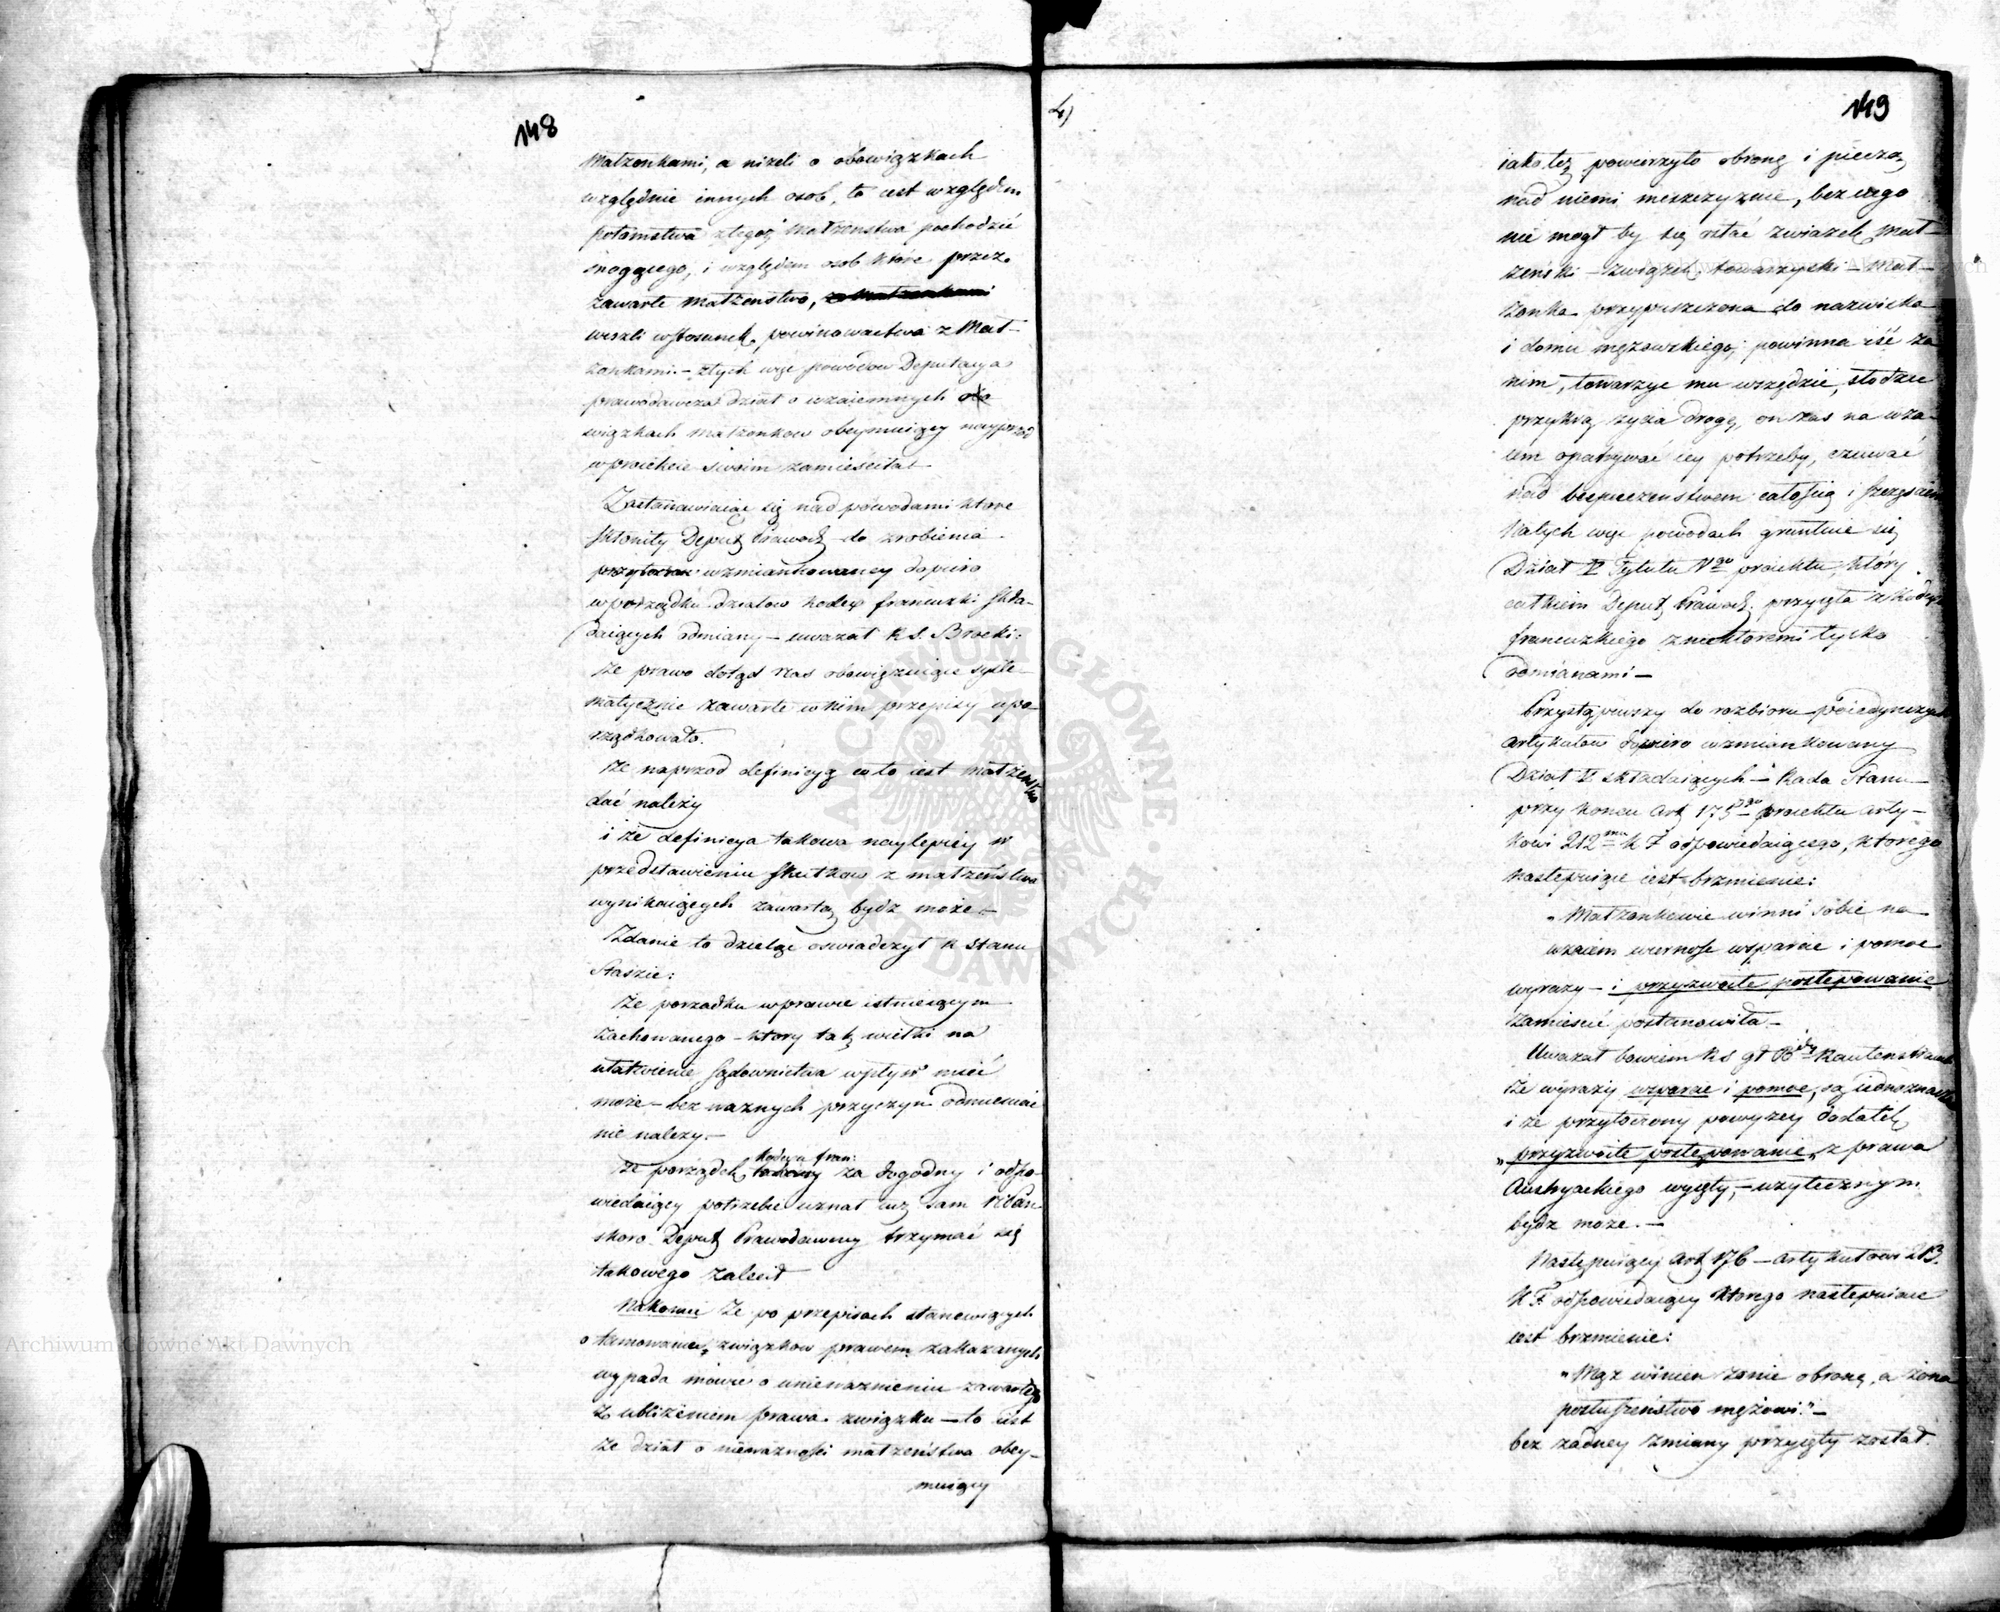 148
Małzonkami, a nizeli o obowiązkach
względnie innych osob, to iest względem
potomstwa z tegoż Małżenstwa pochodzić
mogącego, i względem osob ktore przez
zawarte Małżenstwo,
weszli w stosunek powinowactwa z Mał-
zonkami. – z tych więc powodow Deputacya
prawodawcza dział o wzaiemnych obo
wiązkach Małzonkow obeymuiący nayprzod
w proiekcie swoim zamieściła
Zastanawiaiąc się nad powodami ktore
skłoniły Deput. Prawod. do zrobienia
wzmiankowaney dopiero
w porządku działow kodex francuzki skła-
daiących odmiany – uwazał R.S. Brocki:
że prawo dotąd nas obowiązuiące syste-
matycznie zawarte w nim przepisy upo-
rządkowało.
że naprzod definicyą co to iest małżenstwo
dać należy
i że definicya takowa naylepiey w
przedstawieniu skutkow z małżeństwa
wynikaiących zawartą bydz może. –
Zdanie to dzieląc oswiadczył R Stanu
Staszic:
że porządku w prawie istnieiącym
zachowanego – ktory tak wielki na
ułatwienie sądownictwa wpływ mieć
może – bez waznych przyczyn odmieniać
nie nalezy. –
Kodexu fran:
że porządek za dogodny i odpo-
wiedaiący potrzebie uznał iuż sam
skoro Deput. Prawodawczey trzymać się
takowego zalecił
Nakoniec że po przepisach stanowiących
o tamowaniu związkow prawem zakazanych
wypada mówić o unieważnieniu zawartego
z ubliżeniem prawa związku – to iest
że dział o nieważności małżeństwa obey-
muiący
149
iako też powierzyło obronę i pieczą
nad niemi meszczyznie, bez czego
nie mogł by się ostać związek Mał-
żeński – związek towarzyski – Mał-
żonka przypuszczona do nazwiska
i domu męzowskiego; powinna iść za
nim, towarzyć mu wszędzie, słodzić
przykrą życia drogę, on zas na wza-
iem opatrywać iey potrzeby, czuwać
nad bezpieczenstwem całością i szczęściem
Na tych więc powodach gruntuie się
Dział V Tytułu Vgo proiektu, który
całkiem Deput. Prawod. przyięła z Kodexu
francuzkiego z niektoremi tylko
odmianami –
Przystąpiwszy do rozbioru poiedynczych
artykułow dopiero wzmiankowany
Dział V składaiących – Rada Stanu
przy koncu art. 175go proiektu arty-
kułowi 212mu K F odpowiedaiącego, ktorego
następuiące iest brzmienie:
„Małzonkowie winni sobie na
wzaiem wiernosc wsparcie i pomoc
wyrazy – i przyzwoite postępowanie
zamieścić postanowiła –
Uwazał bowiem R S gł
że wyrazy wsparcie i pomoc, są iednoznaczne
i że przytoczony powyzey dodatek
„przyzwoite postępowanie„ z prawa
Austryackiego wyięty, – uzytecznym
bydz moze. –
Następuiący Art 176 – artykułowi 213.
K F odpowiedaiący ktorego następuiące
iest brzmienie:
„Mąz winien żonie obronę, a żona
posłuszeństwo męzowi." –
bez zadney zmiany przyięty został.